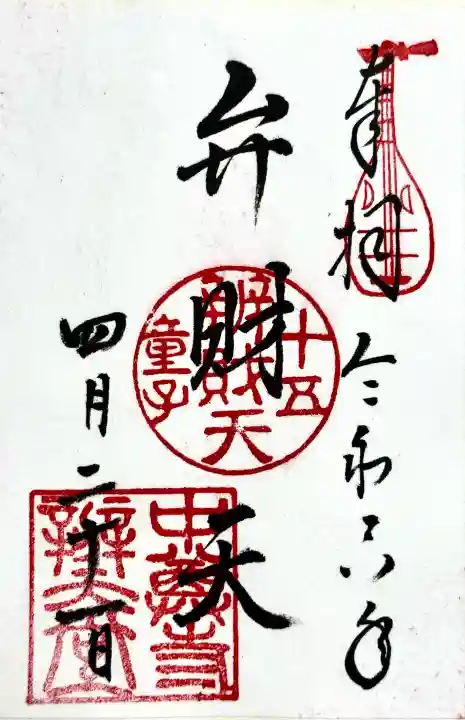 奉拝 令和六年
弁財天
四月二十一日
十五
辨財天
童子
中尊寺
辨天堂